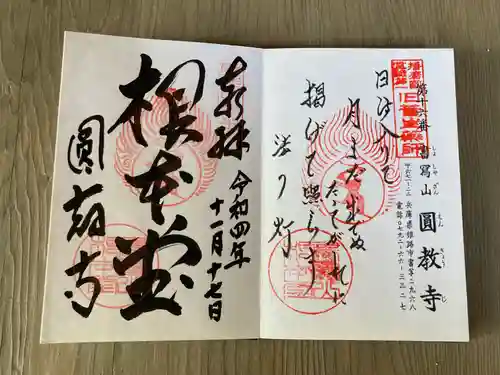 第十六番 書寫山 圓教寺
しょ しゃ ざん えん ぎょう じ
兵庫県姫路市書写二九六八
電話〇七九二-六六-三三二七
日は入りて
月まだ出でぬ
たそがれに
掲げて照らす
法の灯
奉拝
根本堂
圓教寺
令和四年
十一月十七日